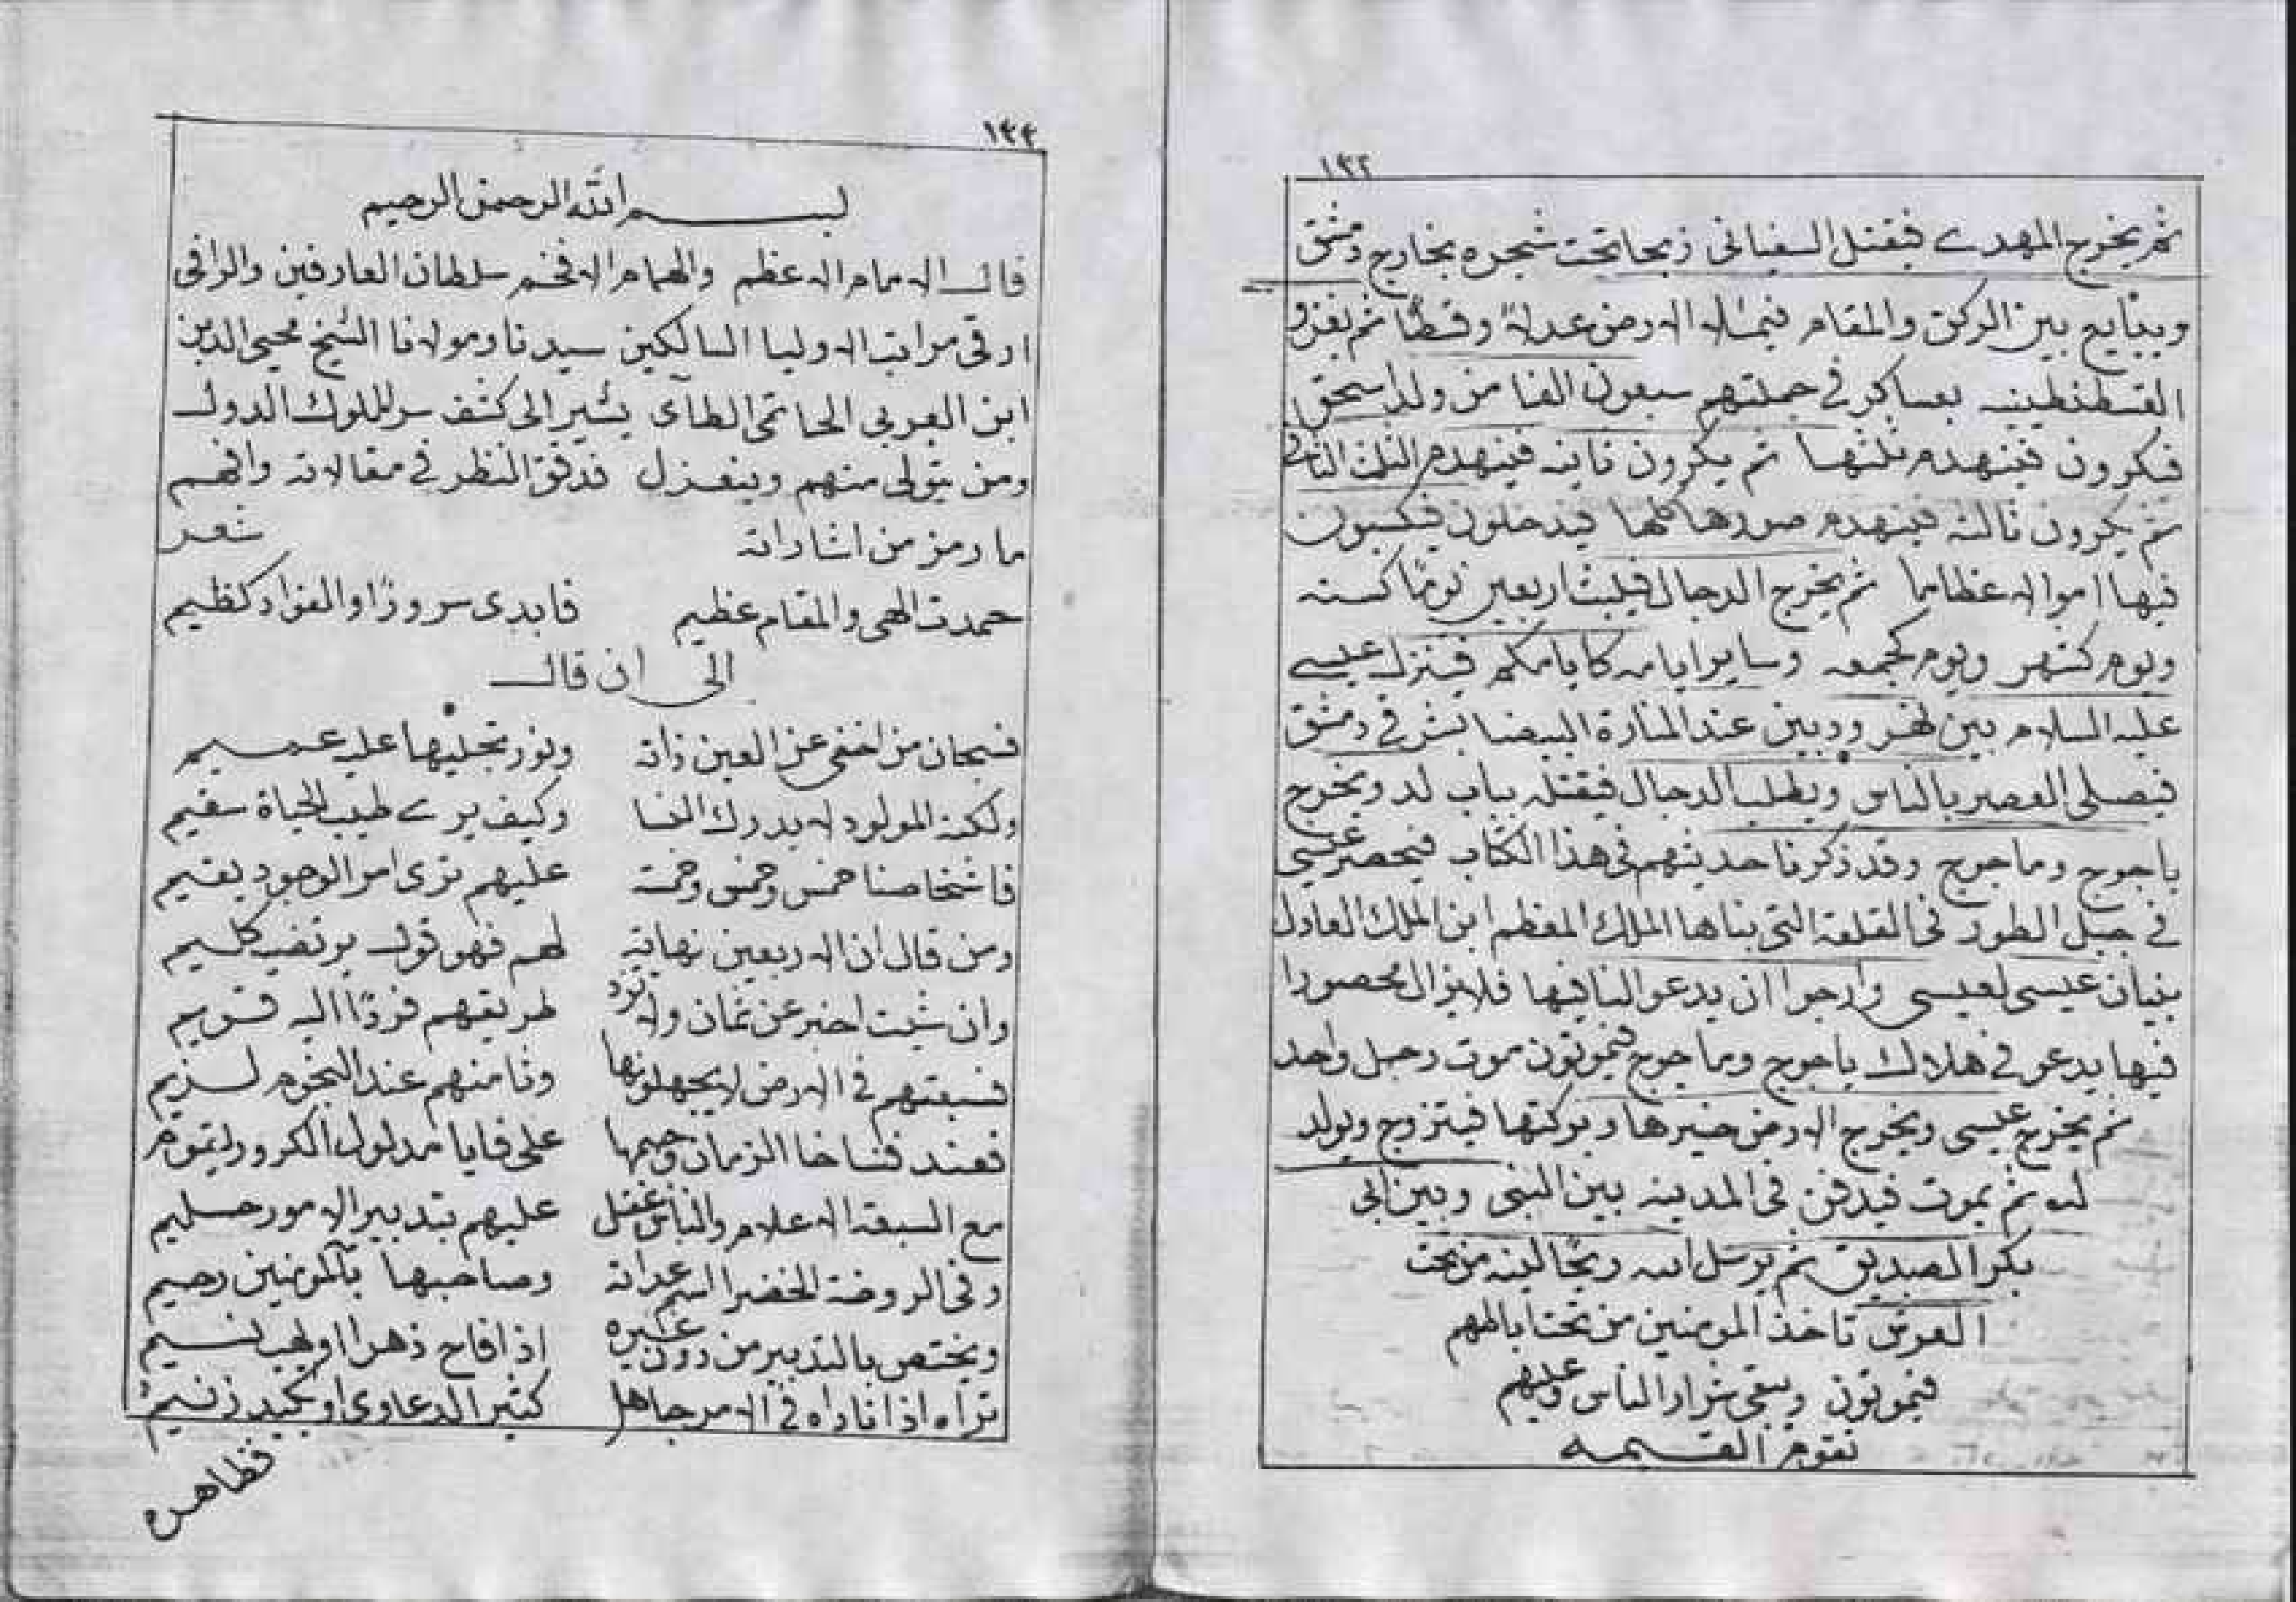 ١٣٢
ثم يخرج المهدي فيقتل السفياني ذبحا تحت شجره بخارج دمشق
ويبايع بين الركن والمقام فيملا الارض عدلا وقسطا ثم يغزو
القسطنطينيه بعساكر في جملتهم سبعون الفا من ولد اسحق
فيكبرون فينهدم ثلثها ثم يكبرون ثانيه فينهدم الثلث الثاني
ثم يكبرون ثالثه فينهدم صورها كلها فيدخلون فيكسبون
فيها اموالا عظاما ثم يخرج الدجال فيلبث اربعين يومًا كسنه
ويوم كشهر ويوم كجمعه وساير ايامه كايامكم فينزل عيسى
عليه السلام بين مهرودين عند المنارة البيضا بشرقي دمشق
فيصلى العصر بالناس ويطلب الدجال فيقتله بباب لد ويخرج
ياجوج وماجوج وقد ذكرنا حديثهم في هذا الكتاب فيحصر عيسى
في جبل الطور في القلعة التي بناها الملك المعظم ابن الملك العادل
بنيان عيسى لعيسى وارجوا ان يدعو لنا فيها فلا يزال محصورا
فيها يدعو في هلاك ياجوج وماجوج فيموتون موت رجل واحد
ثم يخرج عيسى ويخرج الارض خيرها وبركتها فيتزوج ويولد
له ثم يموت فيدفن في المدينه بين النبى وبين ابي
بكر الصديق ثم يرسل الله ريحًا لينه من تحت
العرش تاخذ المومنين من تحت اباطهم
فيموتون ويبقى شرار الناس وعليهم
تقوم القيمه
١٣٣
بسم الله الرحمن الرحيم
قال الامام الاعظم والهمام الافخم سلطان العارفين والراقي
ارقى مراتب الاوليا السالكين سيدنا ومولانا الشيخ محيى الدين
ابن العربي الحاتمي الطائى يشير الى كشف سر للملوك الدول
ومن يتولى منهم وينعزل فدقق النظر في مقالاته وافهم
ما رمز من اشاراته شعر
حمدت الهى والمقام عظيم فابدى سرورًا والفؤاد كظيم
الى ان قال
فسبحان من اخفى عن العين ذاته ونور تجليها عليه عميم
ولكنه المولود لا يدرك الفنا وكيف يرى طيب الحياة سقيم
فاشخاصنا خمس وخمس وخمسة عليهم ترى امر الوجود يقيم
ومن قال ان الاربعين نهاية لهم فهو قول يرتضيه كليم
وان شيت اخبر عن ثمان ولا تزد طريقهم فردًا اليه قويم
فسبعتهم في الارض لا يجهلونها وثامنهم عند النجوم لزيم
فعند فنا خا الزمان وجيمها على فايا مدلول الكرور يقوم
مع السبعة الاعلام والناس غفل عليهم بتدبير الامور حليم
وفي الروضة الخضرا اسم عداته وصاحبها بالمومنين رحيم
ويختص بالتدبير من دون غيره اذا فاح زهرا او يهب نسيم
تراه اذا ناداه في الامر جاهل كثير الدعاوى او يكيد زنيم
فظاهره